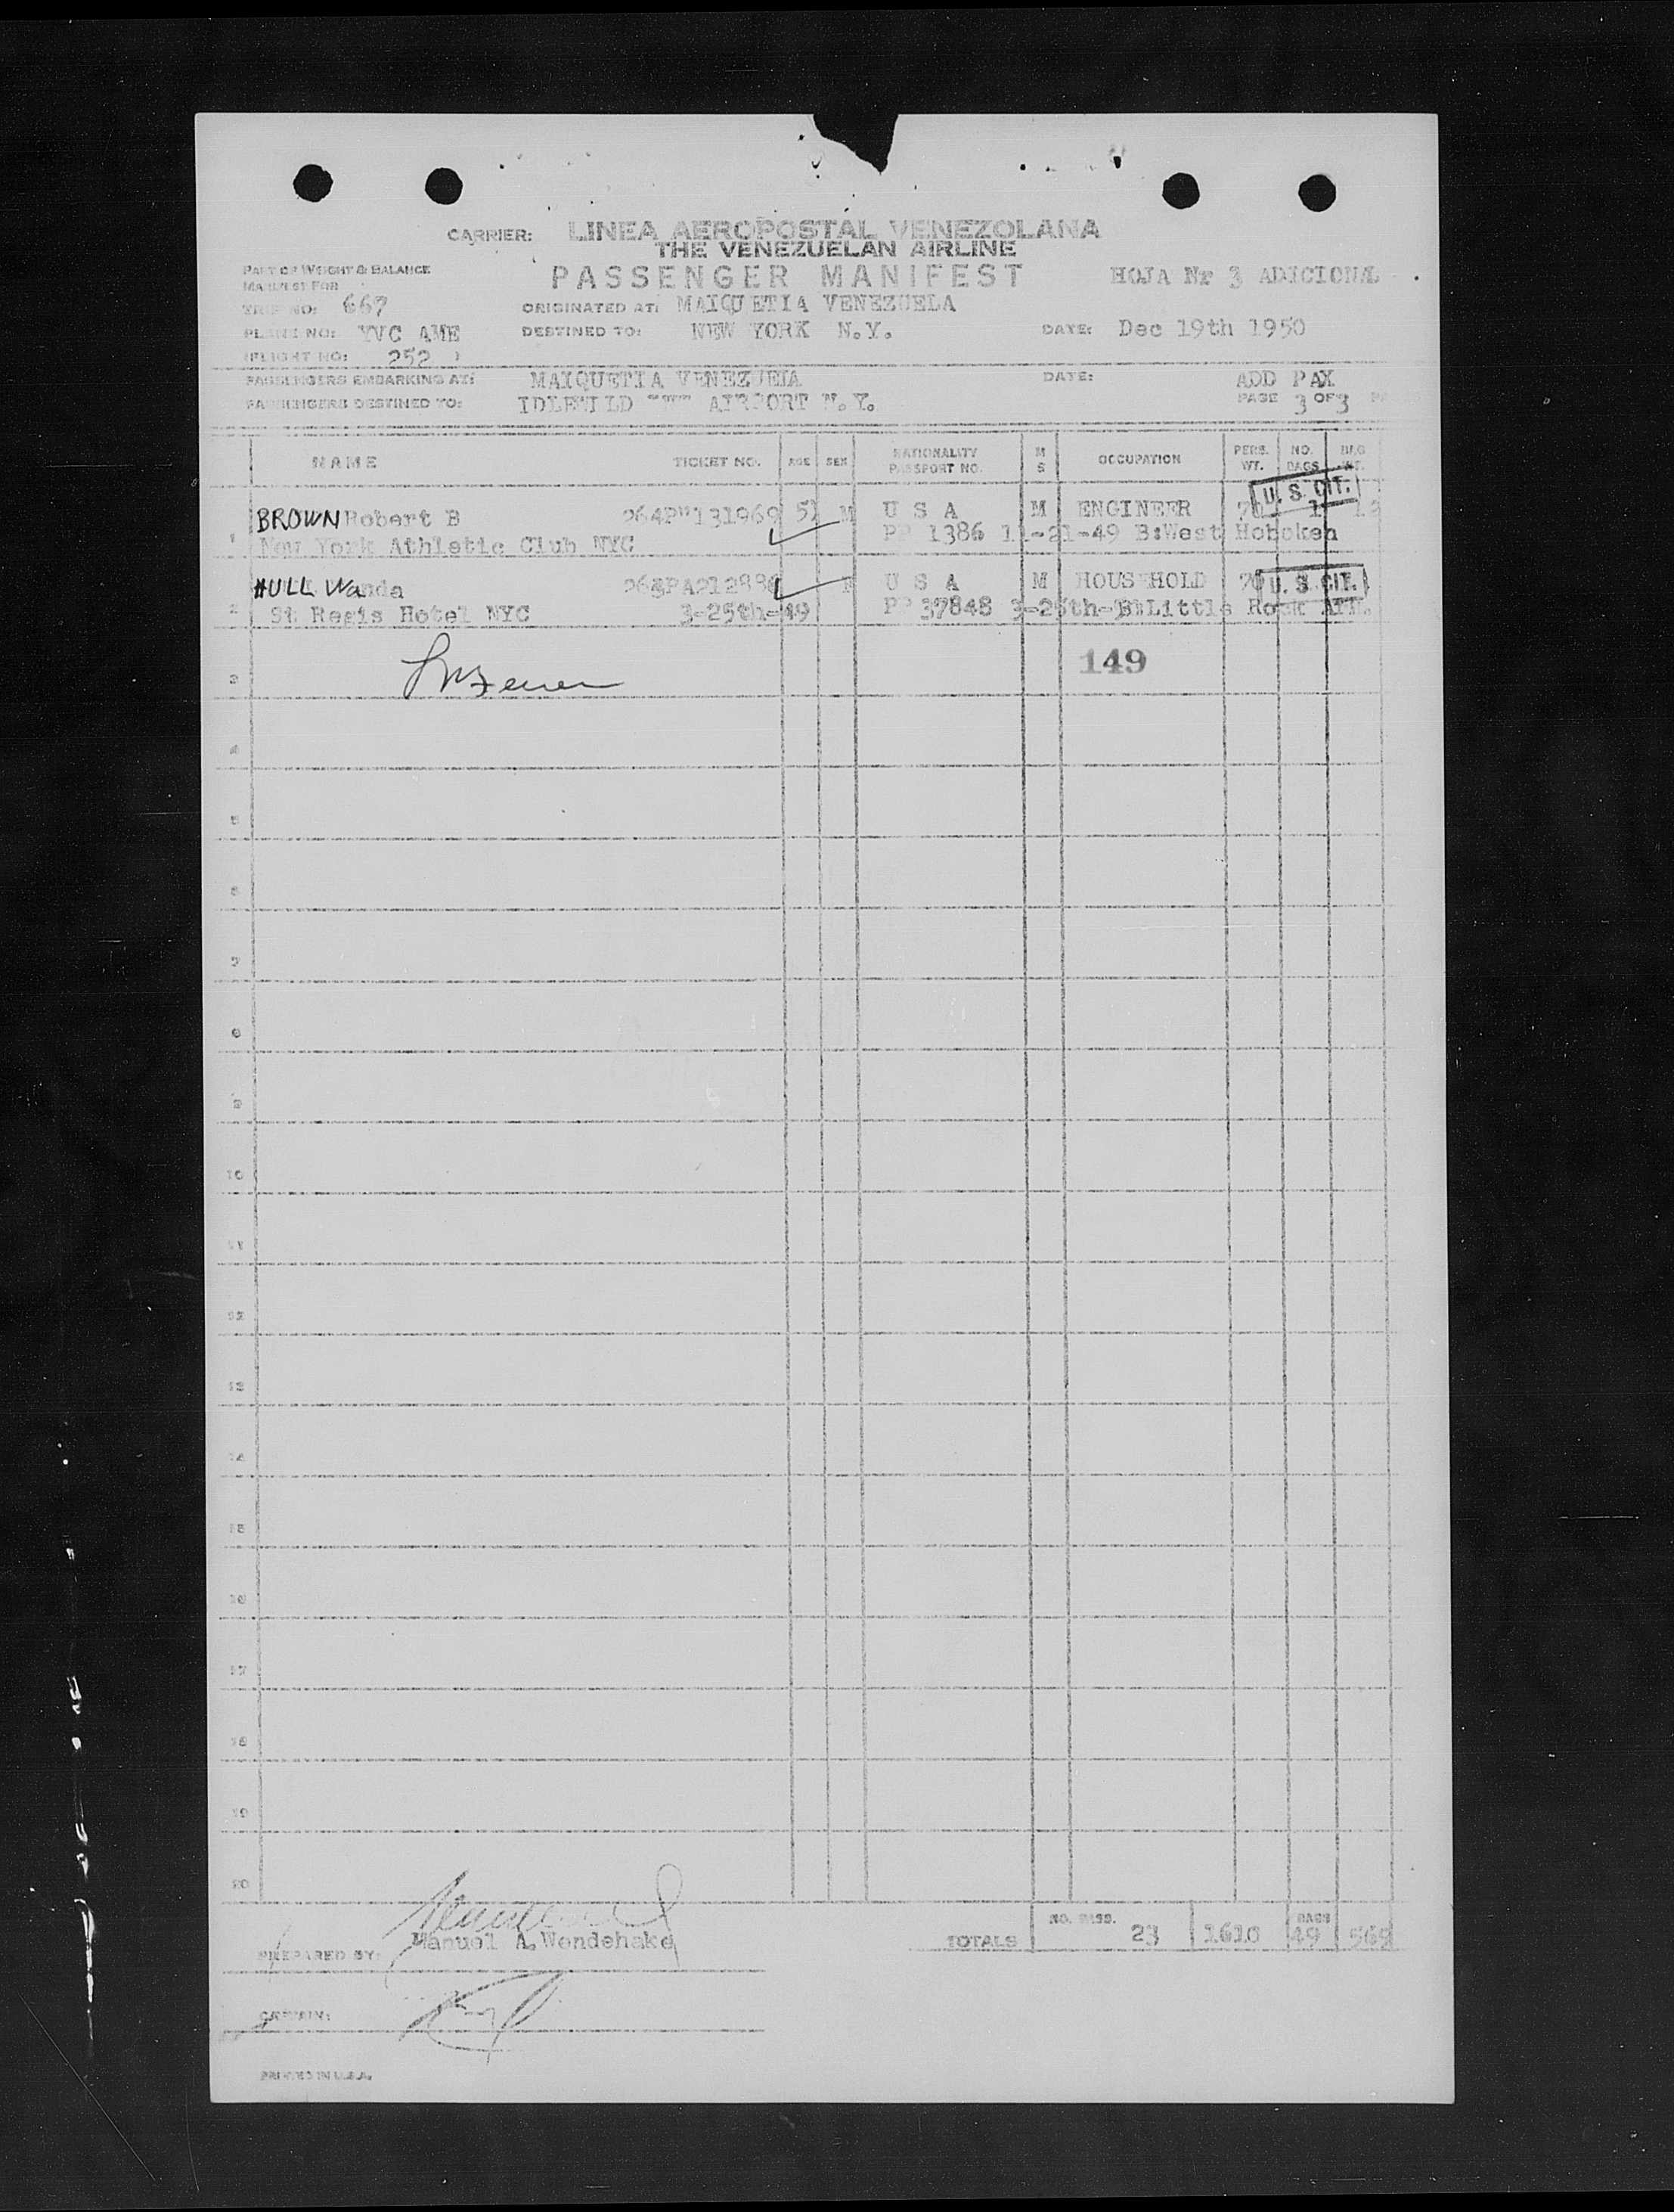 CARRIER: LINEA AEROPOSTAL VENEZOLANA
THE VENEZUELAN AIRLINE
PART OF WEIGHT & BALANCE
MANIFEST FOR
PASSENGER MANIFEST
HOJA Nr 3 ADICIONAL
TRIP NO: 667
ORIGINATED AT: MAIQUETIA VENEZUELA
PLANE NO: YVC AME
DESTINED TO: NEW YORK N.Y.
DATE: Dec 19th 1950
(FLIGHT NO: 252 )
PASSENGERS EMBARKING AT: MAIQUETIA VENEZUELA
DATE: ADD PAX
PASSENGERS DESTINED TO: IDLEWILD AIRPORT N.Y.
PAGE 3 OF 3
NAME TICKET NO. AGE SEX NATIONALITY PASSPORT NO. M S OCCUPATION PERS. WT. NO. BAGS BAG WT.
U. S. CIT.
BROWN Robert B 51 M U S A M ENGINEER 70 1
1 New York Athletic Club NYC PP 1386 11-21-49 B:West Hoboken
HULL Wanda F U S A M HOUSEHOLD 70 U. S. CIT.
2 St Regis Hotel NYC 3-25th-49 PP 37848 Little Rock
3 149
4
5
6
7
8
9
10
11
12
13
14
15
16
17
18
19
20
PREPARED BY: Manuel A. Wendehake
TOTALS NO. PASS. 23 1610 BAGS 49 569
CAPTAIN:
PRINTED IN U.S.A.